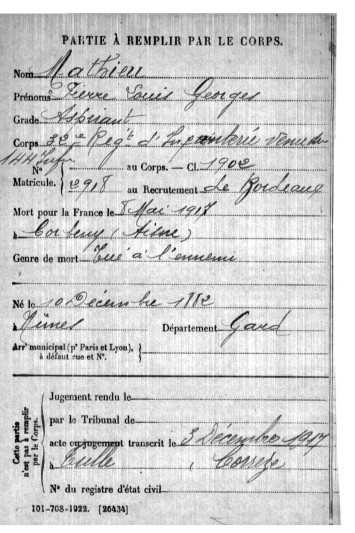 PARTIE À REMPLIR PAR LE CORPS.
Nom Mathieu
Prénoms Pierre Louis Georges
Grade Aspirant
Corps 32e Regt d'Infanterie venu du
144 Infie
N° au Corps. — Cl. 1902
Matricule. 2918 au Recrutement de Bordeaux
Mort pour la France le 8 Mai 1917
à Corbeny (Aisne)
Genre de mort Tué à l'ennemi
Né le 10 Décembre 1882
à Nîmes Département Gard
Arrt municipal (pr Paris et Lyon),
à défaut rue et N°.
Cette partie
n'est pas à remplir
par le Corps.
Jugement rendu le
par le Tribunal de
acte ou jugement transcrit le 3 Décembre 1917
à Tulle, Corrèze
N° du registre d'état civil
101-708-1922. [26434]